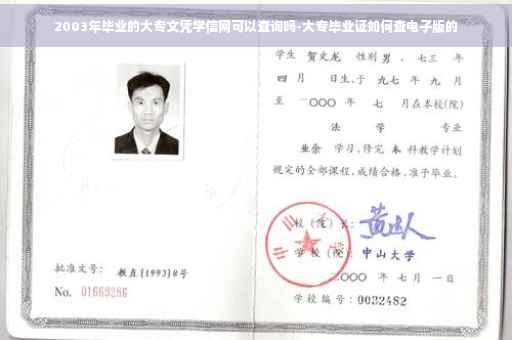 2003年毕业的大专文凭学信网可以查询吗-大专毕业证如何查电子版的
学生 贺文龙 性别 男 、七三 年
四 月 日生,于 九七 年 九 月
至 二〇〇〇 年 七 月在本校(院)
法 学 专业
业余 学习,修完 本 科教学计划
规定的全部课程,成绩合格,准予毕业。
校(院)长:
学校(院): 中山大学
批准文号: 教直[1993]8号
二〇〇〇 年 七 月 一 日
No. 01669286
学校编号: 0032482